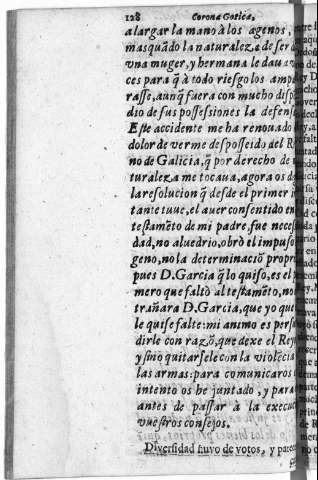 128 Corona Gotica,
alargar la mano à los agenos,
mas quãdo la naturaleza, de ser d
vna muger, y hermana le daua v
ces para q̃ à todo riesgo los amp
rasse, aunq̃ fuera con mucho disp
dio de sus possessiones la defens
Este accidente me ha renouado
dolor de verme desposseido del R
no de Galicia, q̃ por derecho de
turaleza me tocaua, agora os d
la resolucion q̃ desde el primer i
tante tuue, el auer consentido en
testamẽto de mi padre, fue neces
dad, no aluedrio, obrò el impulso
geno, no la determinaciõ propr
pues D. Garcia q̃ lo quiso, es el p
mero que faltò al testamẽto, no
trañara D. Garcia, que yo que
le quise falte: mi animo es persu
dirle con razõ, que dexe el Rey
y sino quitarsele con la violẽcia
las armas: para comunicaros
intento os he juntado, y para
antes de passar à la execu
vuestros consejos.
Diversidad huvo de votos, y parec